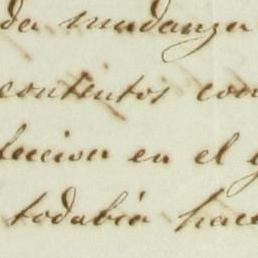 da mudanza
contentos con
leccion en el
todabia hace